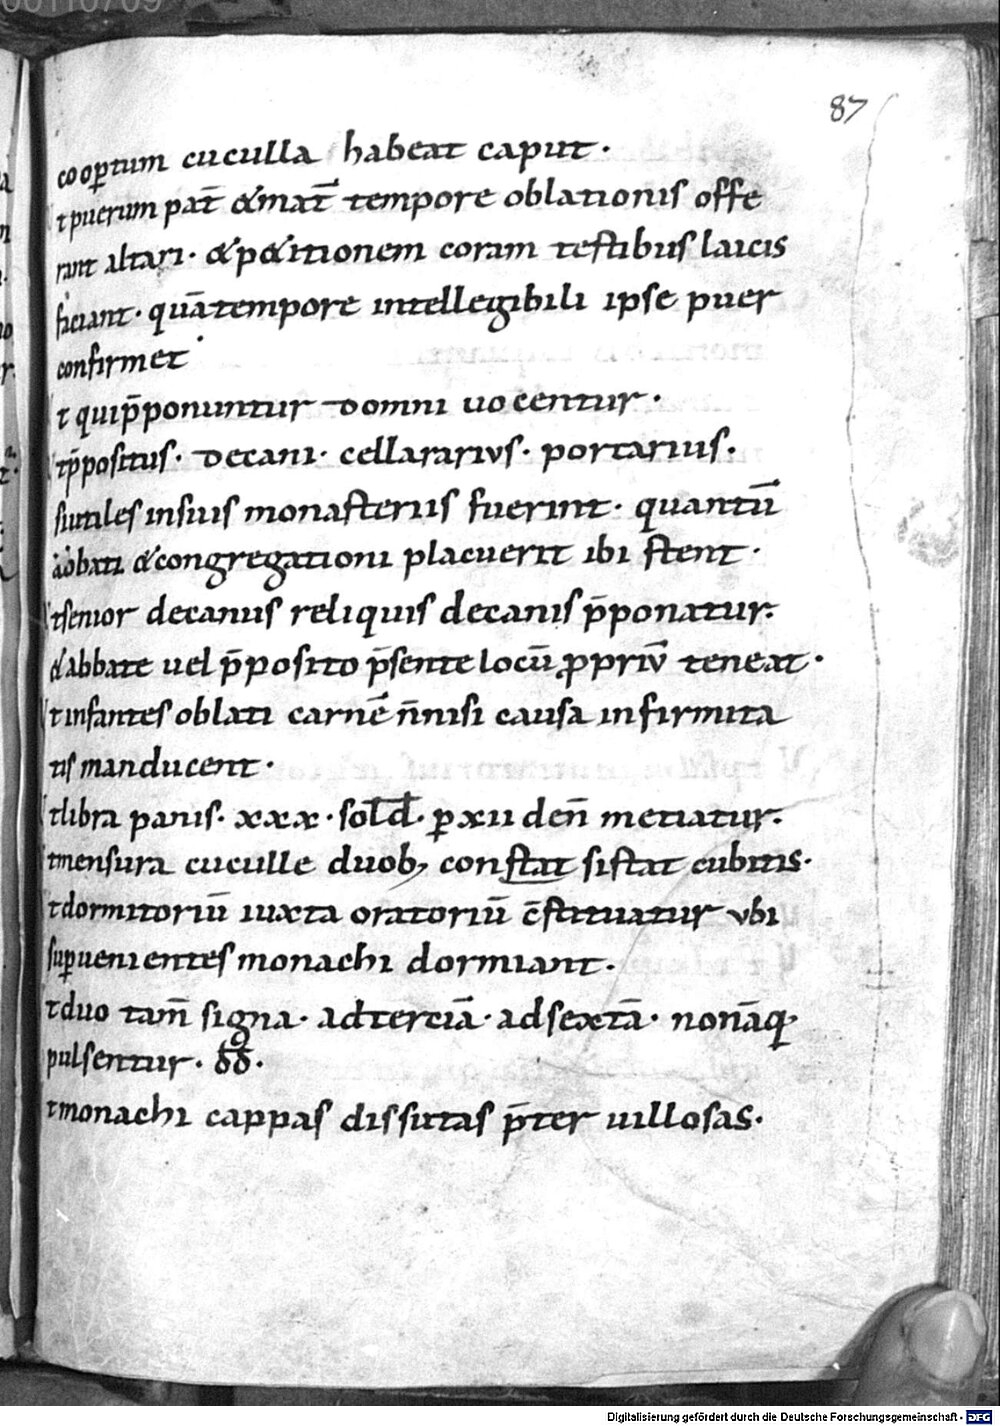 00110709
87
coop̲tum cuculla habeat caput·
t puerum pat̄ &mat̄ tempore oblationis offe
rant altari· &p&itionem coram testibus laicis
faciant· quā tempore intellegibili ipse puer
confirmet·
t qui p̄ponuntur domni uocentur·
t p̄positus· decani· cellararius· portarius·
si utiles in suis monasteriis fuerint· quantū
abbati &congregationi placuerit ibi stent·
t senior decanus reliquis decanis p̄ponatur·
& abbate uel p̄posito p̄sente locū ꝓpriū teneat·
t infantes oblati carnē n̄ nisi causa infirmita
tis manducent·
t libra panis· xxx· sol̄ d̄· ꝑ xii den̄ metiatur·
t mensura cuculle duob; constat sistat cubitis·
t dormitoriū iuxta oratoriū c̄stituatur ubi
suꝑuenientes monachi dormiant·
t duo tam̄ signa· ad terciā· ad sextā· nonāq·
pulsentur·
t monachi cappas dissutas p̄ter uillosas·
Digitalisierung gefördert durch die Deutsche Forschungsgemeinschaft · DFG